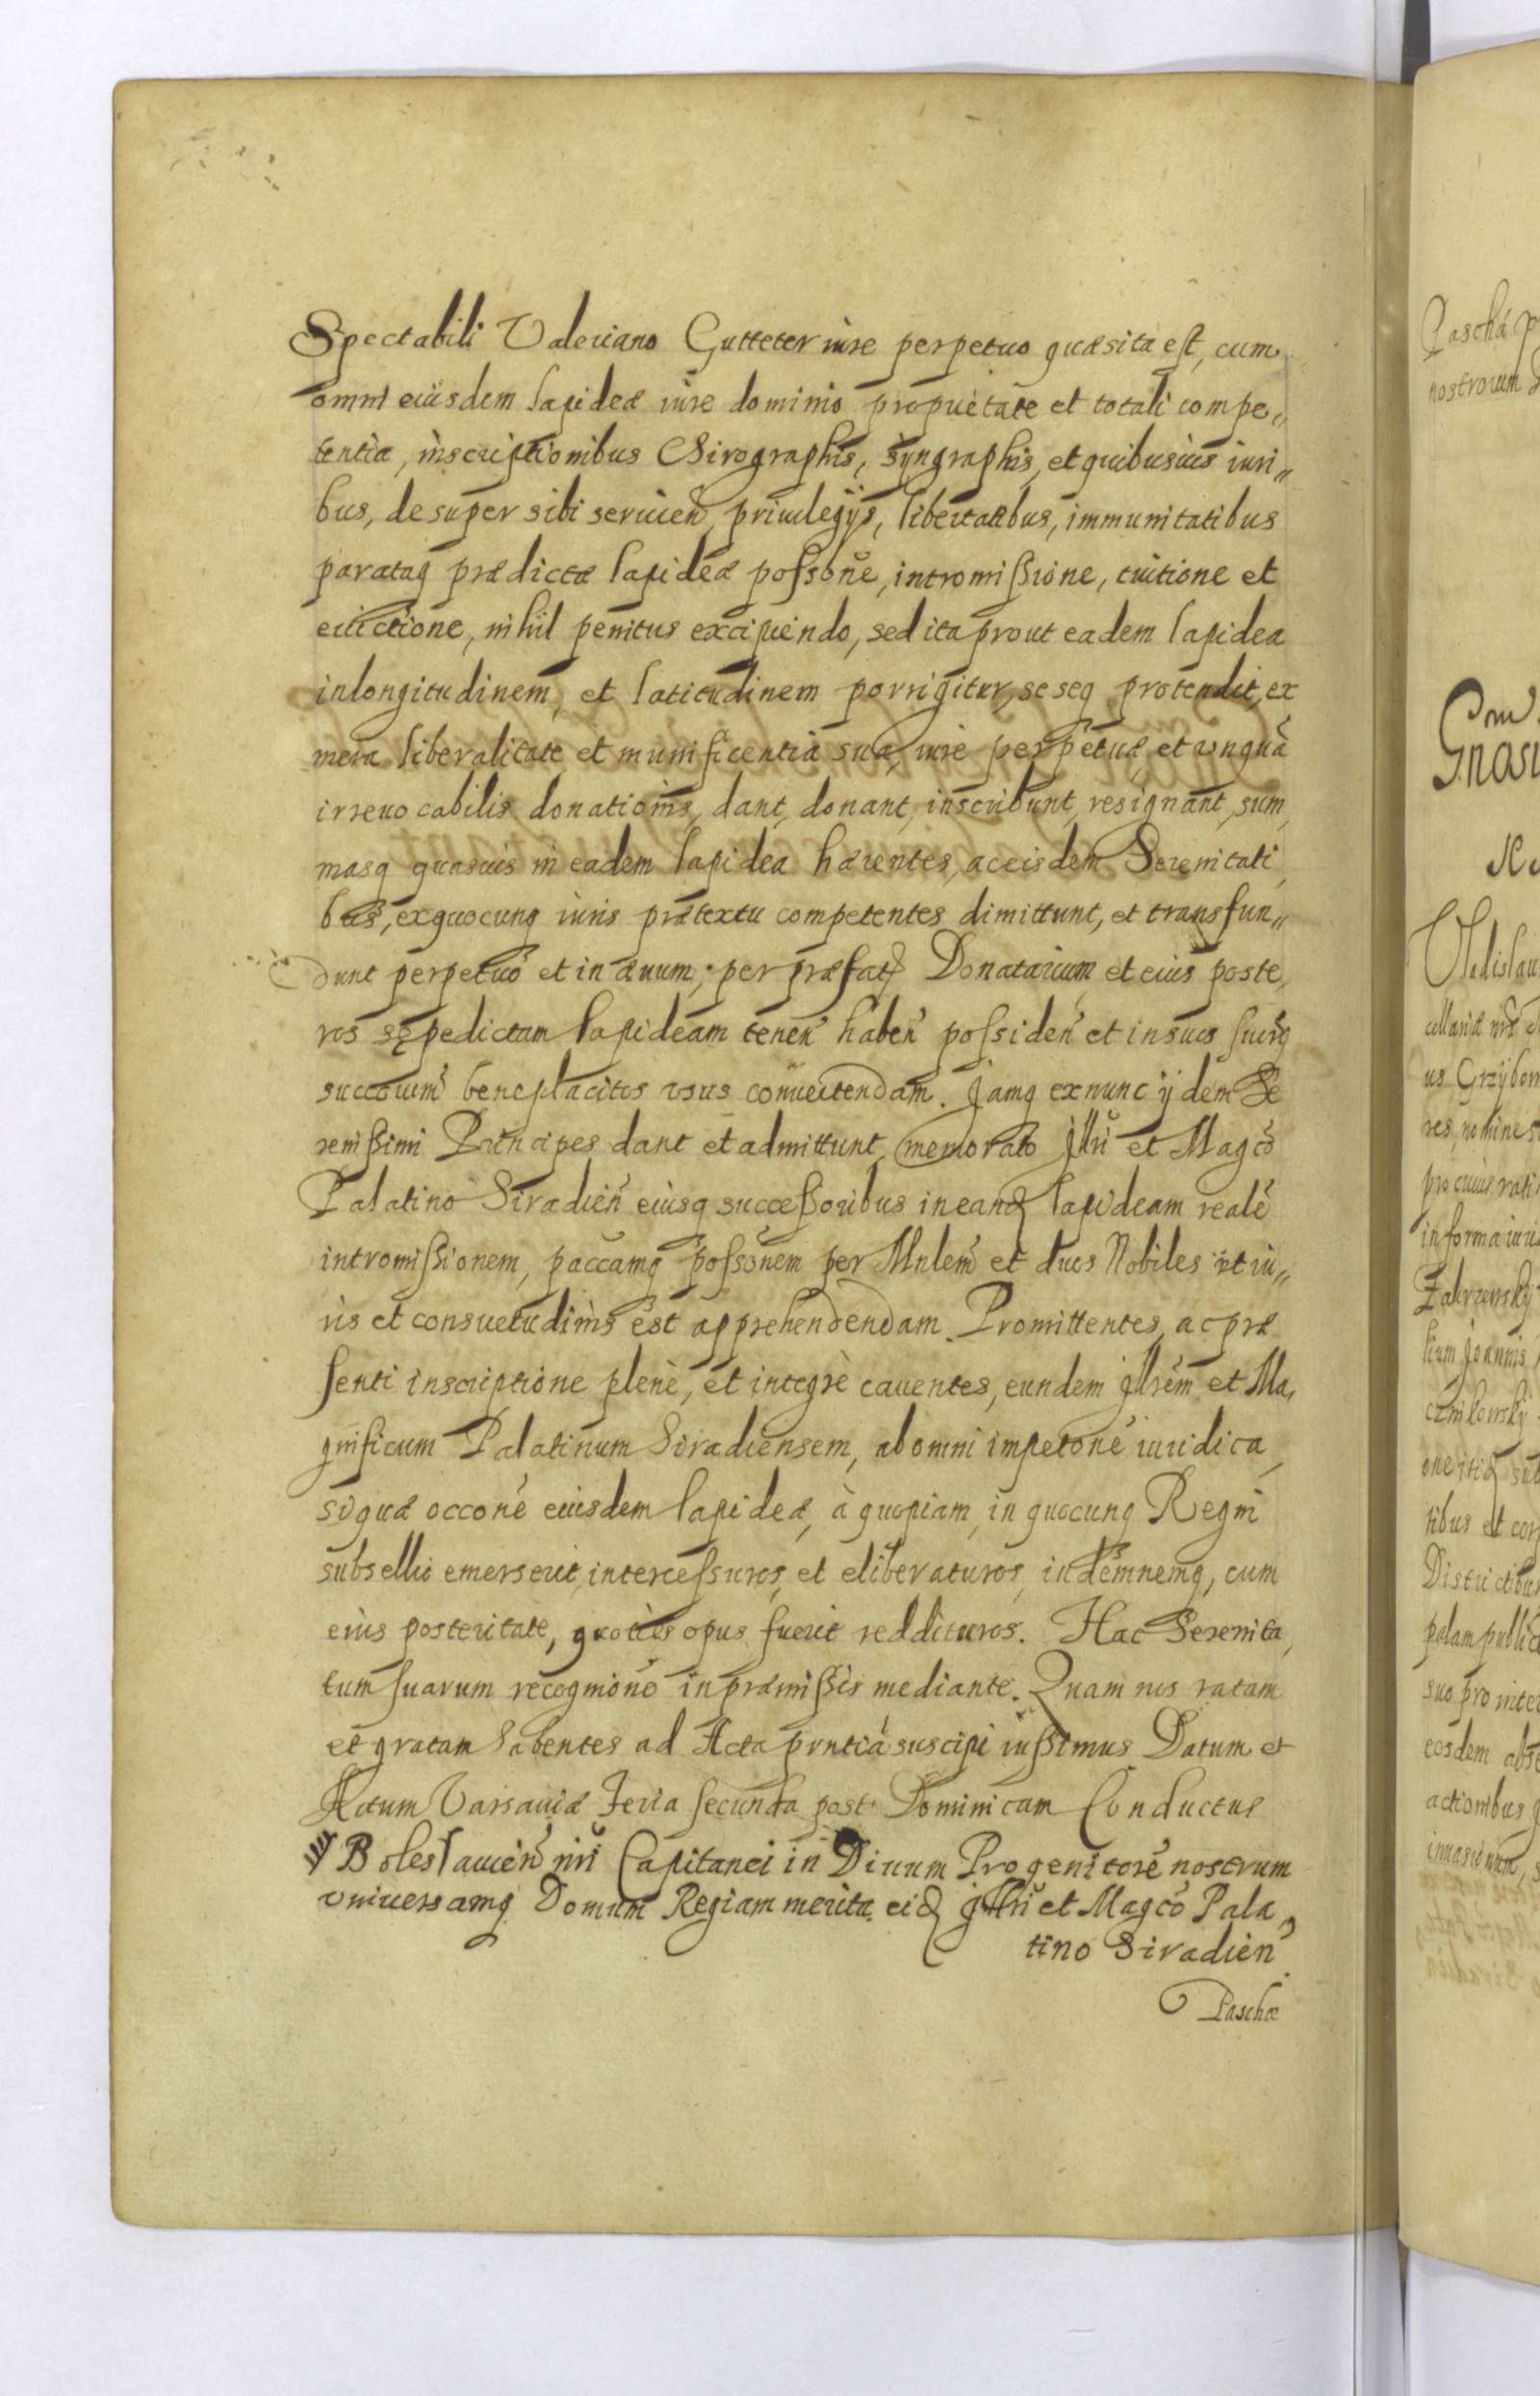 Spectabili Valeriano Gutteter iure perpetuo quæsita est, cum
omni eiusdem lapideæ iure dominio proprietate et totali compe„
tentia, inscriptionibus Chirographis, Syngraphis, et quibusuis iuri„
bus, desuper sibi seruien, priuilegijs, libertatibus, immunitatibus
parataq prædictæ lapideæ possone, intromissione, tuitione et
euictione, nihil penitus excipiendo, sed ita prout eadem lapidea
in longitudinem, et latitudinem porrigitur, seseq protendit, ex
mera liberalitate et munificentia sua, iure perpetuæ, et unquā
irreuocabilis donationis, dant, donant, inscribunt, resignant, sum,
masq quasuis in eadem lapidea hærentes, ac eisdem Serenitati,
bus, ex quocunq iuris prætextu competentes dimittunt, et transfun„
dunt perpetuo et in æuum, per præfat Donatarium et eius poste,
ros sępedictam lapideam tenen haben possiden et in suos suorq
succorum beneplacitos usus conuertendam. Jamq ex nunc ijdem Se
renissimi Principes dant et admittunt, memorato Jllri et Magco
Palatino Siradien eiusq successoribus in eand lapideam realē
intromissionem, paccamq possonem per Mnlem et duos Nobiles ut iu„
ris et consuetudinis est apprehendendam. Promittentes, ac præ
senti inscriptione plenè, et integrè cauentes, eundem Jllrem et Ma,
gnificum Palatinum Siradiensem, ab omni impetone iuridica,
si quæ occone eiusdem lapideæ, à quopiam, in quocunq Regni
subsellio emerserit, intercessuros, et eliberaturos, indemnemq, cum
eius posteritate, quoties opus fuerit reddituros. Hac Serenita,
tum suarum recognione in præmissis mediante. Quam nos ratam
et gratam habentes ad Acta prntia suscipi iussimus Datum et
Actum Varsauiæ Feria secunda post Dominicam Conductus
Boleslauien nri Capitanei in Diuum Progenitore nostrum
uniuersamq Domum Regiam merita eid Jllri et Magco Pala,
tino Siradien
Paschæ